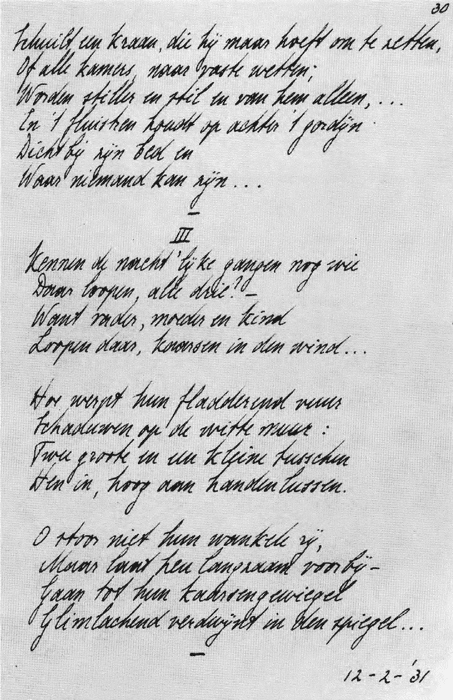 30
Schuilt een kraan, die hij maar hoeft om te zetten,
Of alle kamers, naar vaste wetten,
Worden stiller en stil en van hem alleen, ...
En 't fluisten houdt op achter 't gordijn
Dichtbij zijn bed en
Waar niemand kan zijn ...
III
Kennen de nacht'lijke gangen nog wie
Daar loopen, alle drie? –
Want vader, moeder en kind
Loopen daar, kaarsen in den wind ...
Hoe werpt hun fladderend vuur
Schaduwen op de witte muur:
Twee groote en een kleine tusschen
Hen in, hoog aan handen lussen.
O stoor niet hun wankele rij,
Maar laat hen langzaam voorbij –
Gaan tot hun kaarsengewiegel
Glimlachend verdwijnt in den spiegel ...
12-2-'31